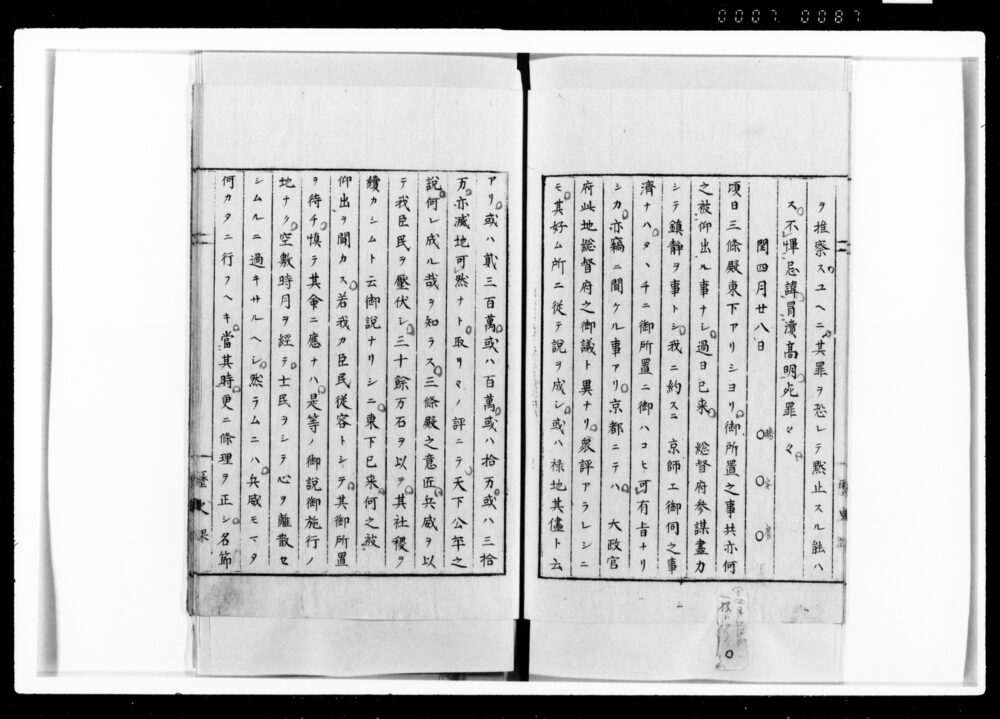 0007 0087
ヲ推察スユヘニ其罪ヲ恐レテ黙止スル能ハ
ス不憚忌諱冒瀆高明死罪々々
閏四月廿八日
頃日三條殿東下アリシヨリ御所置之事共亦何
之被仰出ル事ナシ過日已来 総督府参謀盡力
シテ鎮静ヲ事トシ我ニ約スニ 京師エ御伺之事
濟ナハタヽチニ御所置ニ御ハコヒ可有旨ナリ
シカ亦竊ニ聞ケル事アリ京都ニテハ 大政官
府此地総督府之御議ト異ナリ衆評アラレシニ
モ其好ム所ニ従テ説ヲ成シ或ハ禄地其儘ト云
アリ或ハ貳三百萬或ハ百萬或ハ拾万或ハ三拾
万亦减地可然ナト取リ々ノ評ニテ天下公平之
説何レ成ル哉ヲ知ラス三條殿之意匠兵威ヲ以
テ我臣民ヲ壓伏シ三十餘万石ヲ以テ其社稷ヲ
續カシムト云御説ナリシニ東下已来何之被
仰出ヲ聞カス若我カ臣民従容トシテ其御所置
ヲ待チ慎テ其命ニ應ナハ是等ノ御説御施行ノ
地ナク空敷時月ヲ經テ士民ヲシテ心ヲ離散セ
シムルニ過キサルヘシ然ラムニハ兵威モマタ
何カタニ行フヘキ當其時更ニ條理ヲ正シ名節